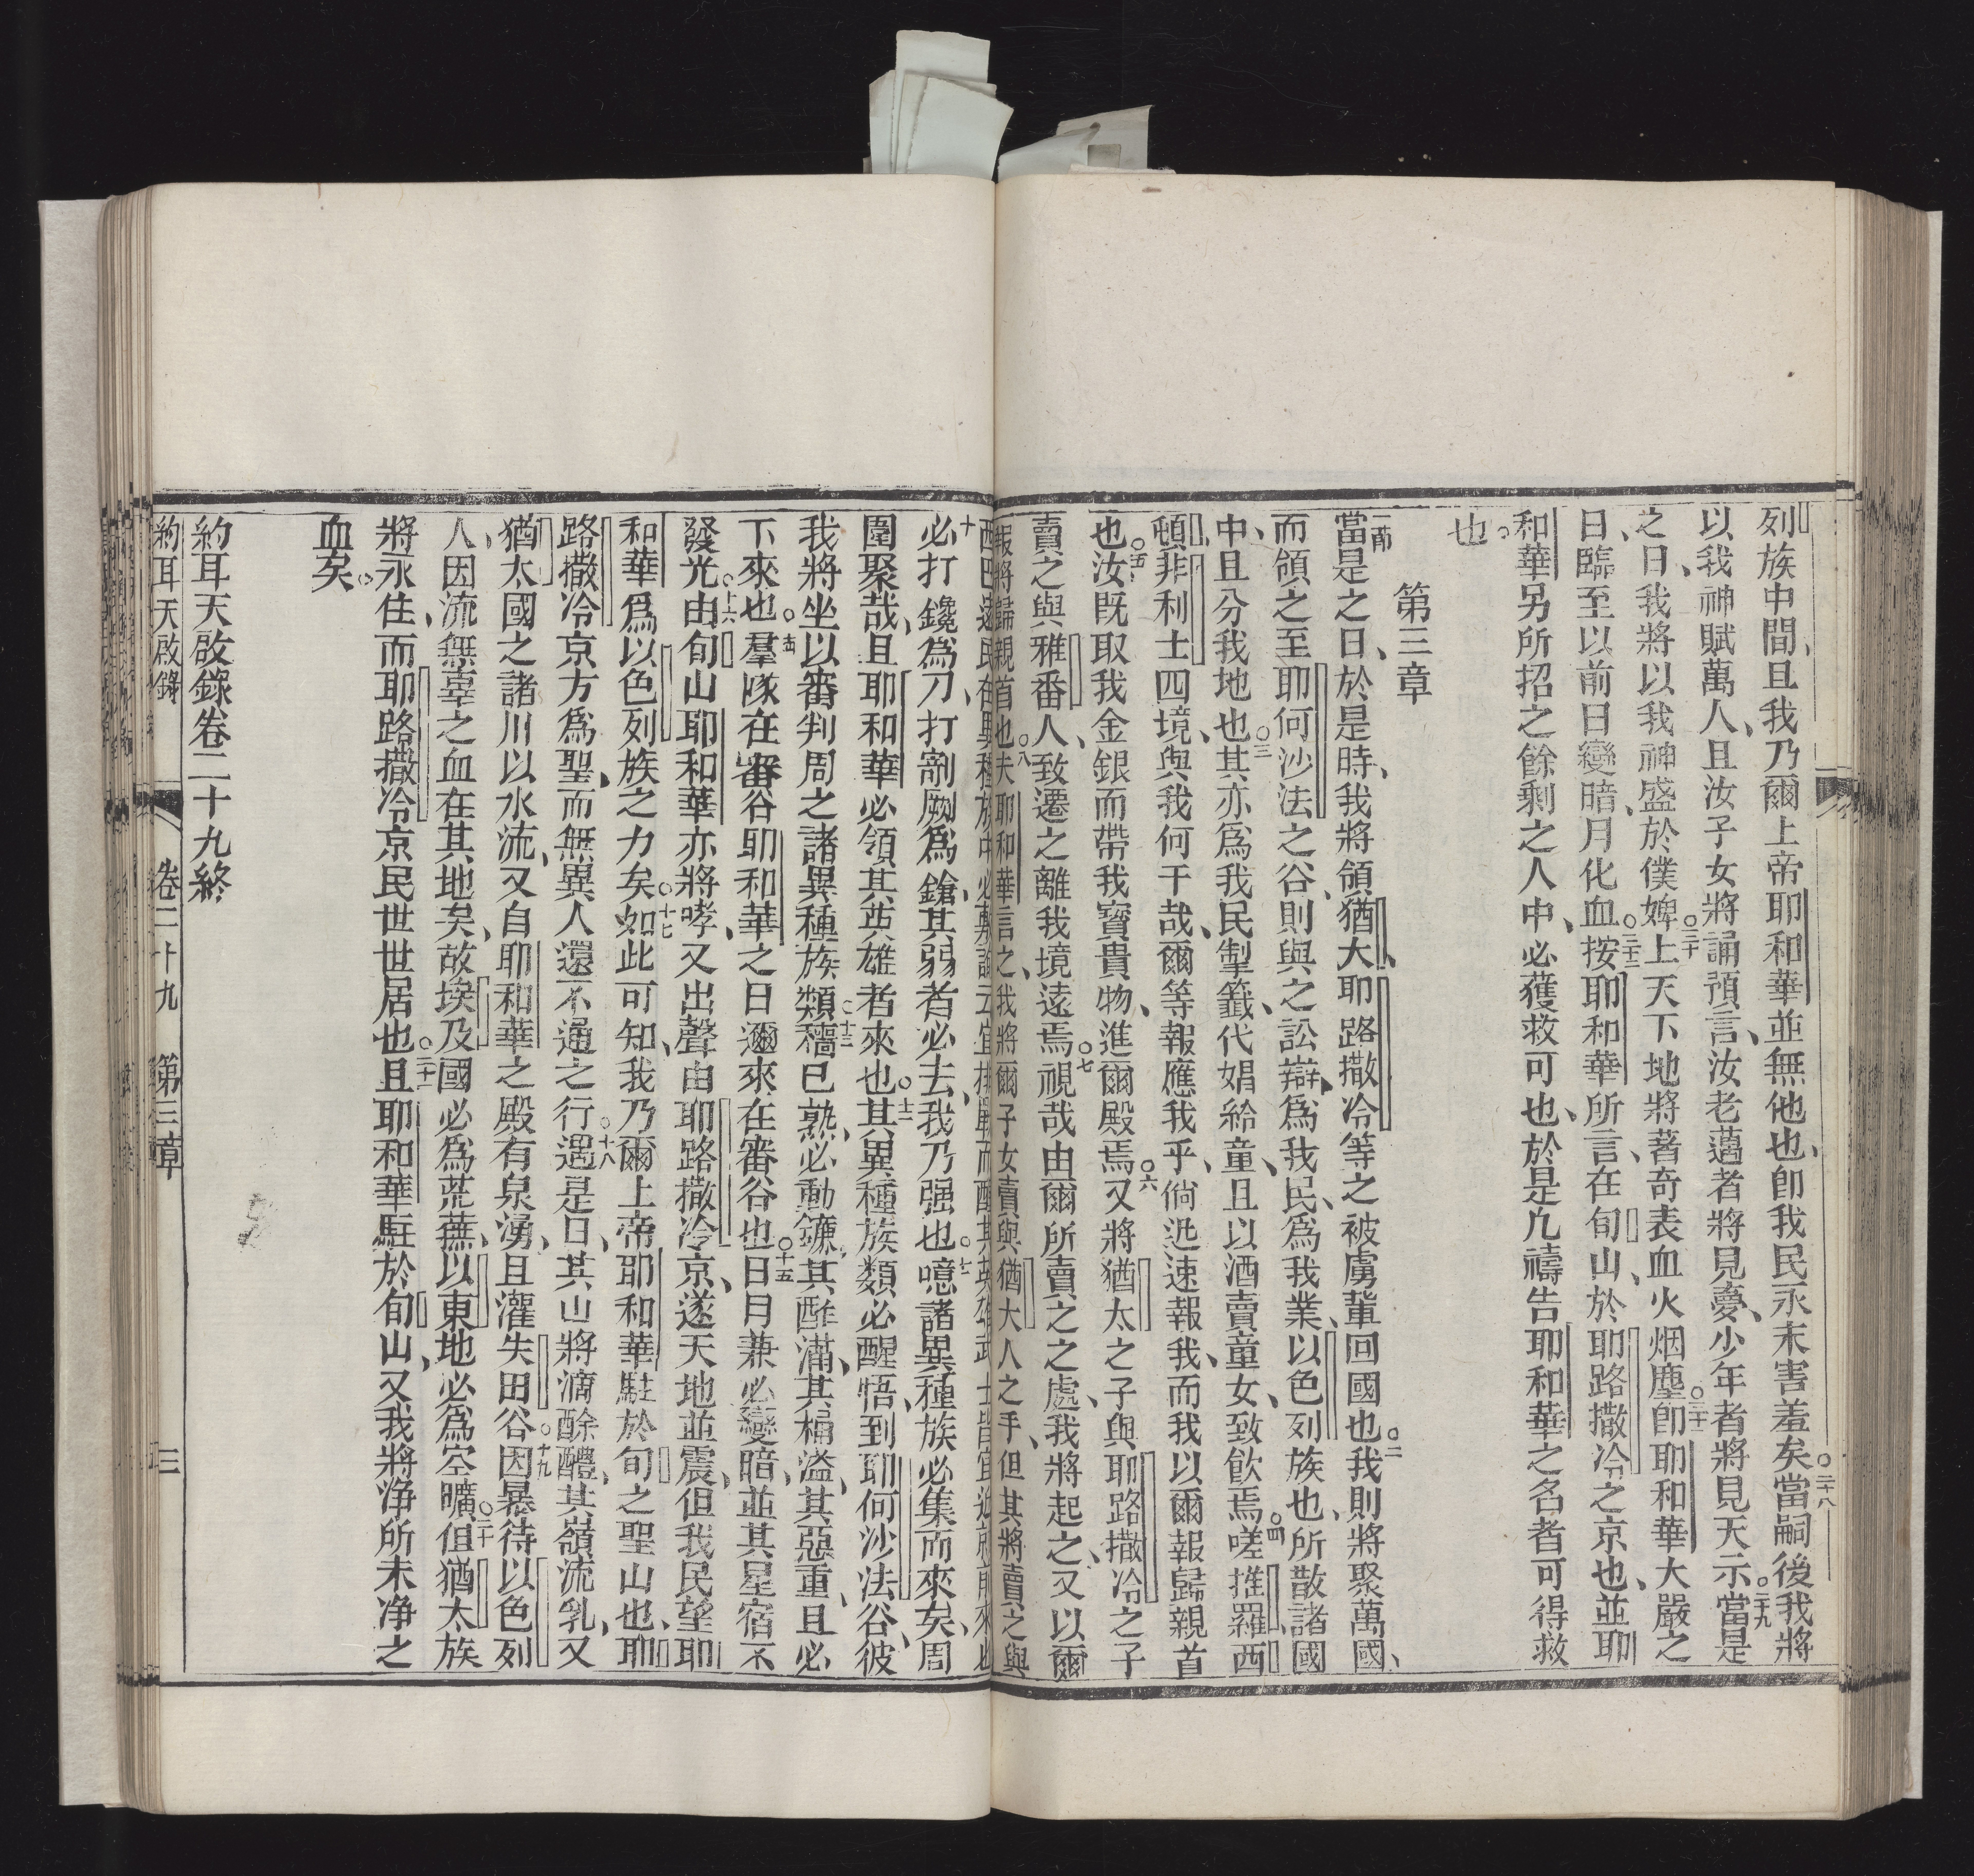 列族中間、且我乃爾上帝耶和華並無他也、卽我民永未害羞矣○二十八當嗣後我將
以我神賦萬人、且汝子女將誦預言、汝老邁者將見夢、少年者將見天示○二十九當是
之日、我將以我神盛於僕婢○三十上天下地將著奇表血火烟塵○三十一卽耶和華大嚴之
日、臨至以前日變暗、月化血○三十二按耶和華所言、在旬山、於耶路撒冷之京也、並耶
和華另所招之餘剩之人中、必獲救可也、於是凢禱告耶和華之名者可得救
也。
第三章
一節當是之日、於是時、我將領猶大、耶路撒冷等之被虜輩回國也○二我則將聚萬國、
而領之至耶何沙法之谷、則與之訟辯、爲我民、爲我業、以色列族也、所散諸國
中、且分我地也○三其亦爲我民掣籤、代娼給童、且以酒賣童女、致飲焉○四嗟推羅、西
頓、非利士四境、與我何干哉、爾等報應我乎、倘迅速報我、而我以爾報歸親首
也○五汝旣取我金銀而帶我寶貴物、進爾殿焉○六又將猶太之子與耶路撒冷之子
賣之與雅番人、致遷之離我境遠焉○七視哉由爾所賣之之處、我將起之、又以爾
報將歸親首也○八夫耶和華言之、我將爾子女賣與猶大人之手、但其將賣之與
西巴遠民在異種族中必專諭云宜排戰而醒其英雄武士皆宜近就前來也
十必打鑱爲刀、打劀劂爲鎗、其弱者必去、我乃强也○十一噫諸異種族必集而來矣、周
圍聚哉、且耶和華必領其英雄者來也○十二其異種族類必醒悟、到耶何沙法谷、彼
我將坐以審判周之諸異種族類○十三穡已熟、必動鐮、其酢滿、其槅溢、其惡重、且必
下來也○十四羣隊在審谷耶和華之日邇來在審谷也○十五日月兼必變暗、並其星宿不
發光○十六由旬山耶和華亦將哮、又出聲由耶路撒冷京、遂天地並震、但我民望耶
和華爲以色列族之力矣○十七如此可知、我乃爾上帝耶和華駐於旬之聖山也、耶
路撒冷京方爲聖、而無異人還不通之行○十八遇是日、其山將滴酴醴、其嶺流乳、又
猶太國之諸川以水流、又自耶和華之殿有泉湧、且灌失田谷○十九因暴待以色列
人、因流無辜之血在其地矣、故埃及國必爲荒蕪、以東地必爲空曠○二十但猶太族
將永住、而耶路撒冷京民世世居也○二十一且耶和華駐於旬山、又我將净所未净之
血矣。
約耳天啟錄卷二十九終
約耳天啟錄 卷二十九 第三章 三